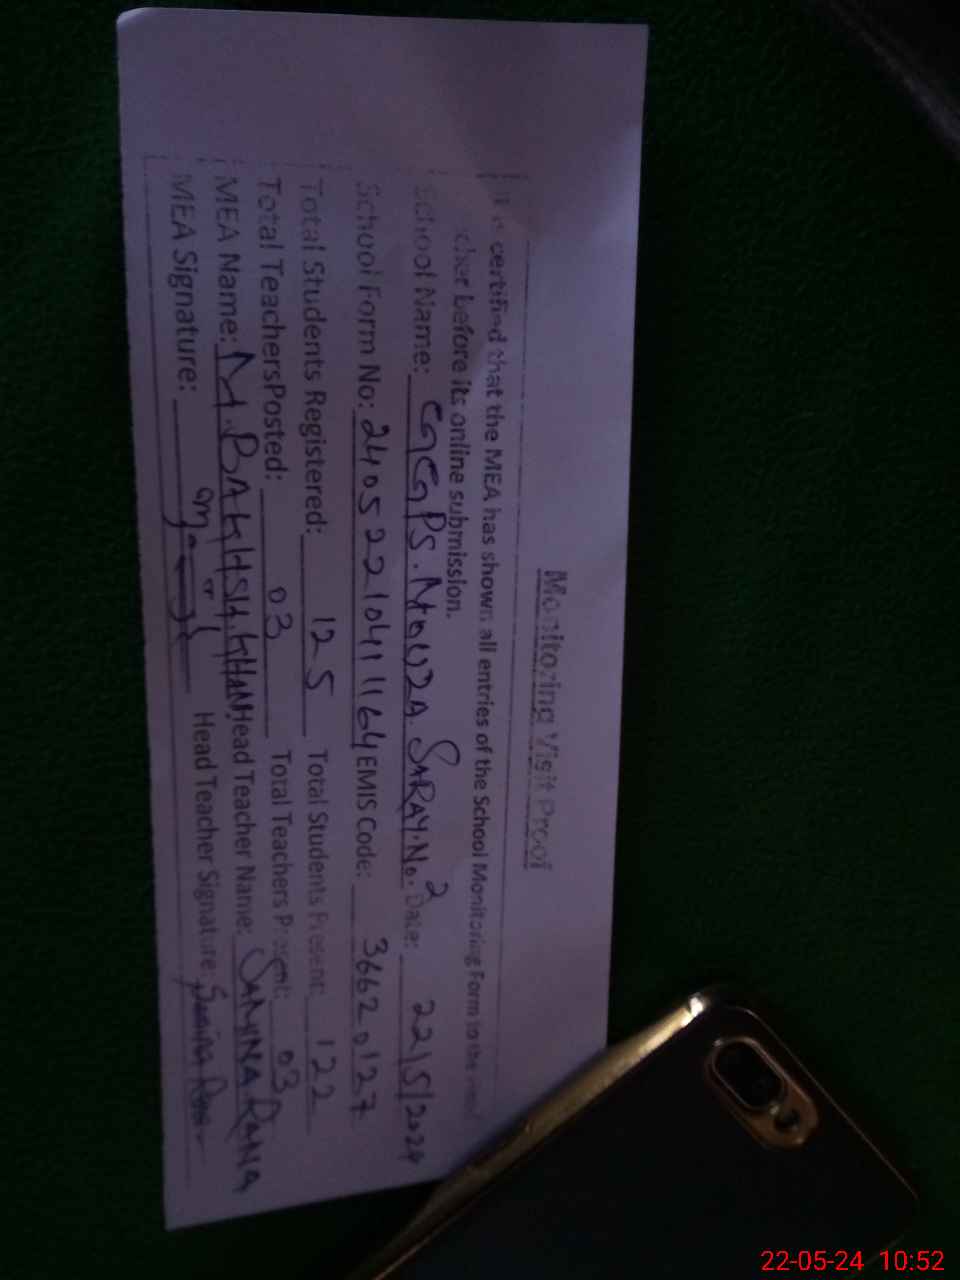 Monitoring Visit Proof
certified that the MEA has shown all entries of the School Monitoring Form to the
before its online submission.
School Name: GGPS. MOUZA. SARAY. No. 2 Date: 22/5/2024
School Form No: 2405221041164 EMIS Code: 36620127
Total Students Registered: 125 Total Students Present: 122
Total TeachersPosted: 03 Total Teachers Present: 03
MEA Name: M. BAKHSH KHAN Head Teacher Name: SAMINA RANA
MEA Signature: Head Teacher Signature: Samina Rana
22-05-24 10:52